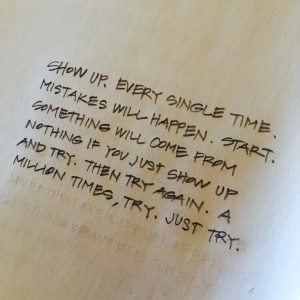 SHOW UP. EVERY SINGLE TIME.
MISTAKES WILL HAPPEN. START.
SOMETHING WILL COME FROM
NOTHING IF YOU JUST SHOW UP
AND TRY. THEN TRY AGAIN. A
MILLION TIMES, TRY. JUST TRY.